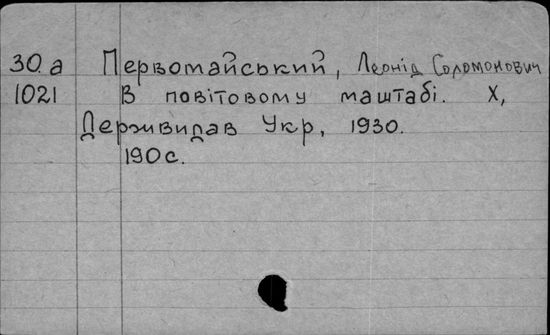 30.а Первомайський, Леонід Соломонович
1021 В повітовому маштабі. Х,
Держвидав Укр, 1930.
190 с.